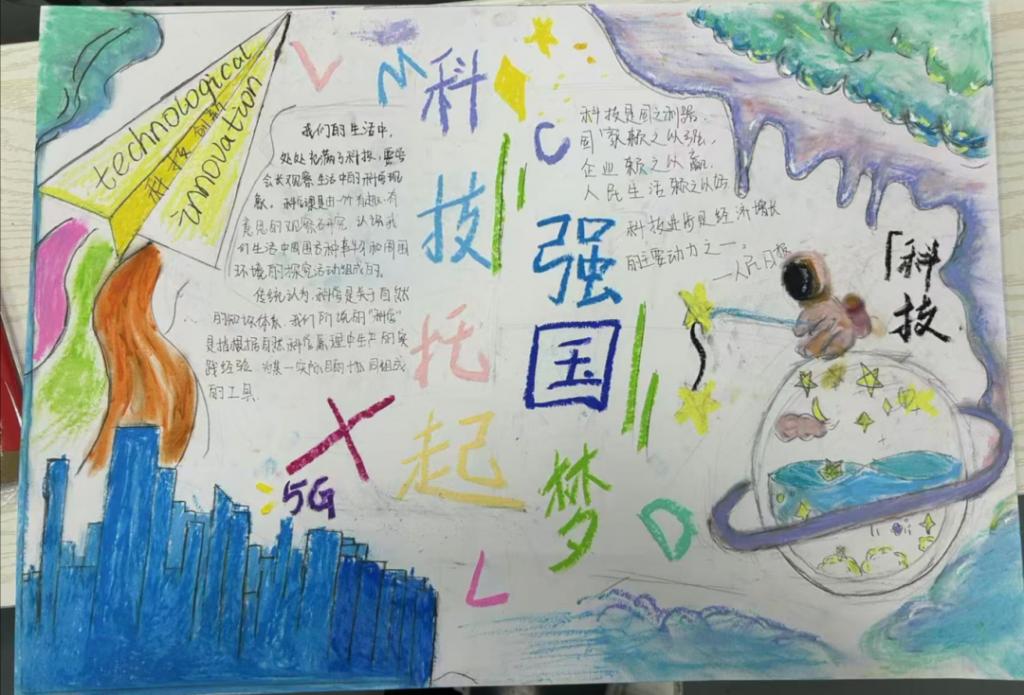 technological
科技创新
innovation
V
M
C
科技托起
强国梦
我们的生活中，
处处充满了科技，要学
会去观察生活中的科学现
象，科学课是由一个个有趣、有
意思的观察与研究，认识我
们生活中周围各种事物和周围
环境的探究活动组成的。
传统认为，科学是关于自然
的知识体系，我们阶级的“科学”
是指根据自然科学原理中生产的实
践经验，为某一实际目的协同组成
的工具
科技是国之利器，
国
赖之以强，
企业赖之以赢，
人民生活赖之以好
科技进步是经济增长
的主要动力之一，
——人民日报
「科
技
X
5G
L
D